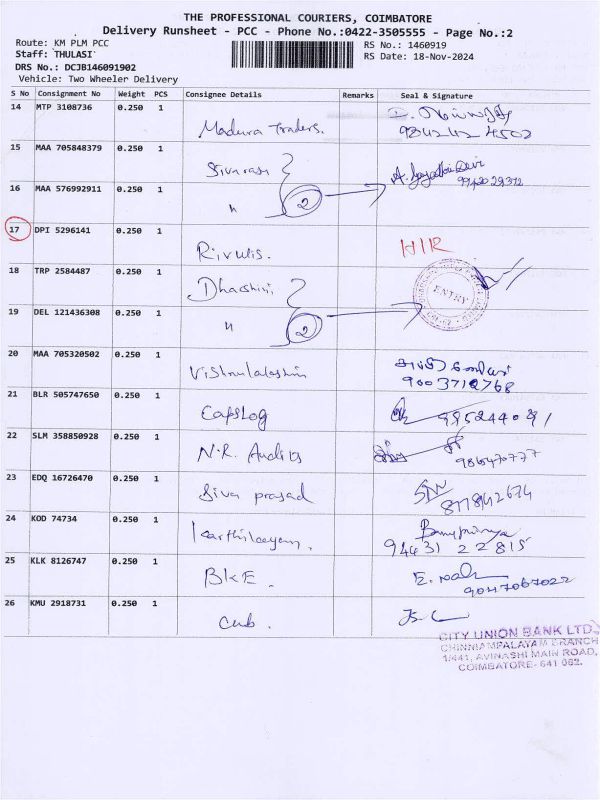 THE PROFESSIONAL COURIERS, COIMBATORE
Delivery Runsheet - PCC - Phone No.:0422-3505555 - Page No.:2
Route: KM PLM PCC RS No.: 1460919
Staff: THULASI RS Date: 18-Nov-2024
DRS No.: DCJB146091902
Vehicle: Two Wheeler Delivery
S No Consignment No Weight PCS Consignee Details Remarks Seal & Signature
14 MTP 3108736 0.250 1 Madura Traders.
15 MAA 705848379 0.250 1 Sivarasi
16 MAA 576992911 0.250 1 " 2
17 DPI 5296141 0.250 1 Rivulis. HIR
18 TRP 2584487 0.250 1 Dharshini ENTRY
19 DEL 121436308 0.250 1 " 2
20 MAA 705320502 0.250 1 9003712768
21 BLR 505747650 0.250 1 Capslog
22 SLM 358850928 0.250 1 N.R. Audits
23 EDQ 16726470 0.250 1 Siva prasad
24 KOD 74734 0.250 1 94431 22815
25 KLK 8126747 0.250 1 BKE.
26 KMU 2918731 0.250 1 Cub.
CITY UNION BANK LTD.,
CHINNIAMPALAYAM BRANCH
1/441, AVINASHI MAIN ROAD,
COIMBATORE- 641 062.